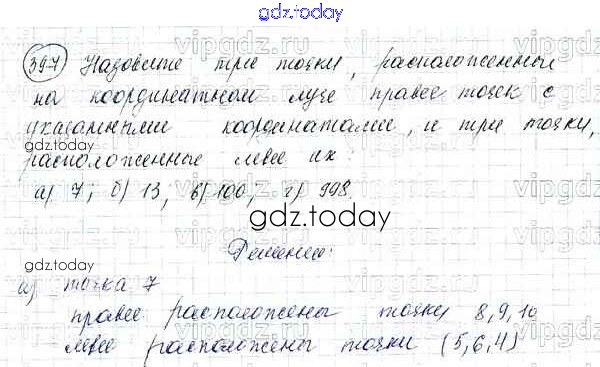 gdz.today
397 Назовите три точки, расположенные
на координатном луче правее точек с
указанными координатами, и три точки,
расположенные левее их:
gdz.today
а) 7; б) 13, в) 100, г) 998.
gdz.today
Решение:
gdz.today
а) точка 7
правее расположены точки 8, 9, 10
левее расположены точки (5, 6, 4)
gdz.today